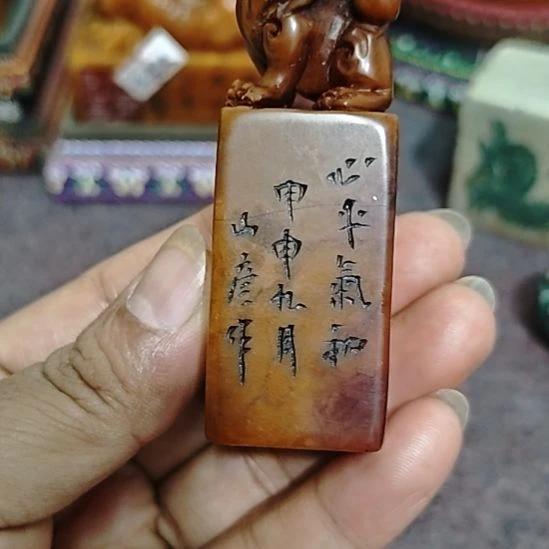 心平氣和
甲申九月
山彦作